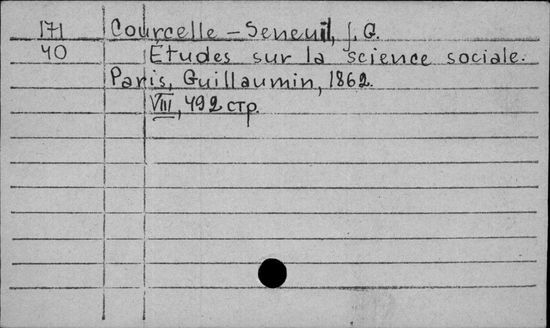 171 Courcelle-Seneuil, J. G.
40 Etudes sur la science sociale.
Paris, Guillaumin, 1862.
VIII, 492 стр.